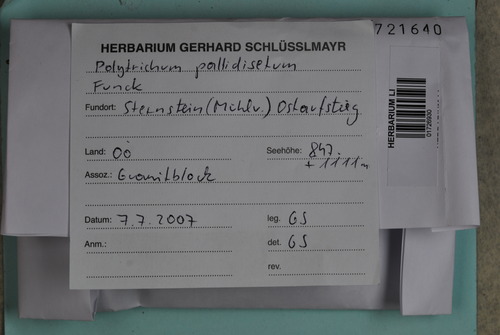 721640
HERBARIUM GERHARD SCHLÜSSLMAYR
Polytrichum pallidisetum
Funck
Fundort: Sternstein (Mühlv.) Ostaufstieg
Land: OÖ Seehöhe: 847.
+ 1111 m
Assoz.: Granitblock
Datum: 7.7.2007 leg. GS
Anm.: det. GS
rev.
HERBARIUM LI